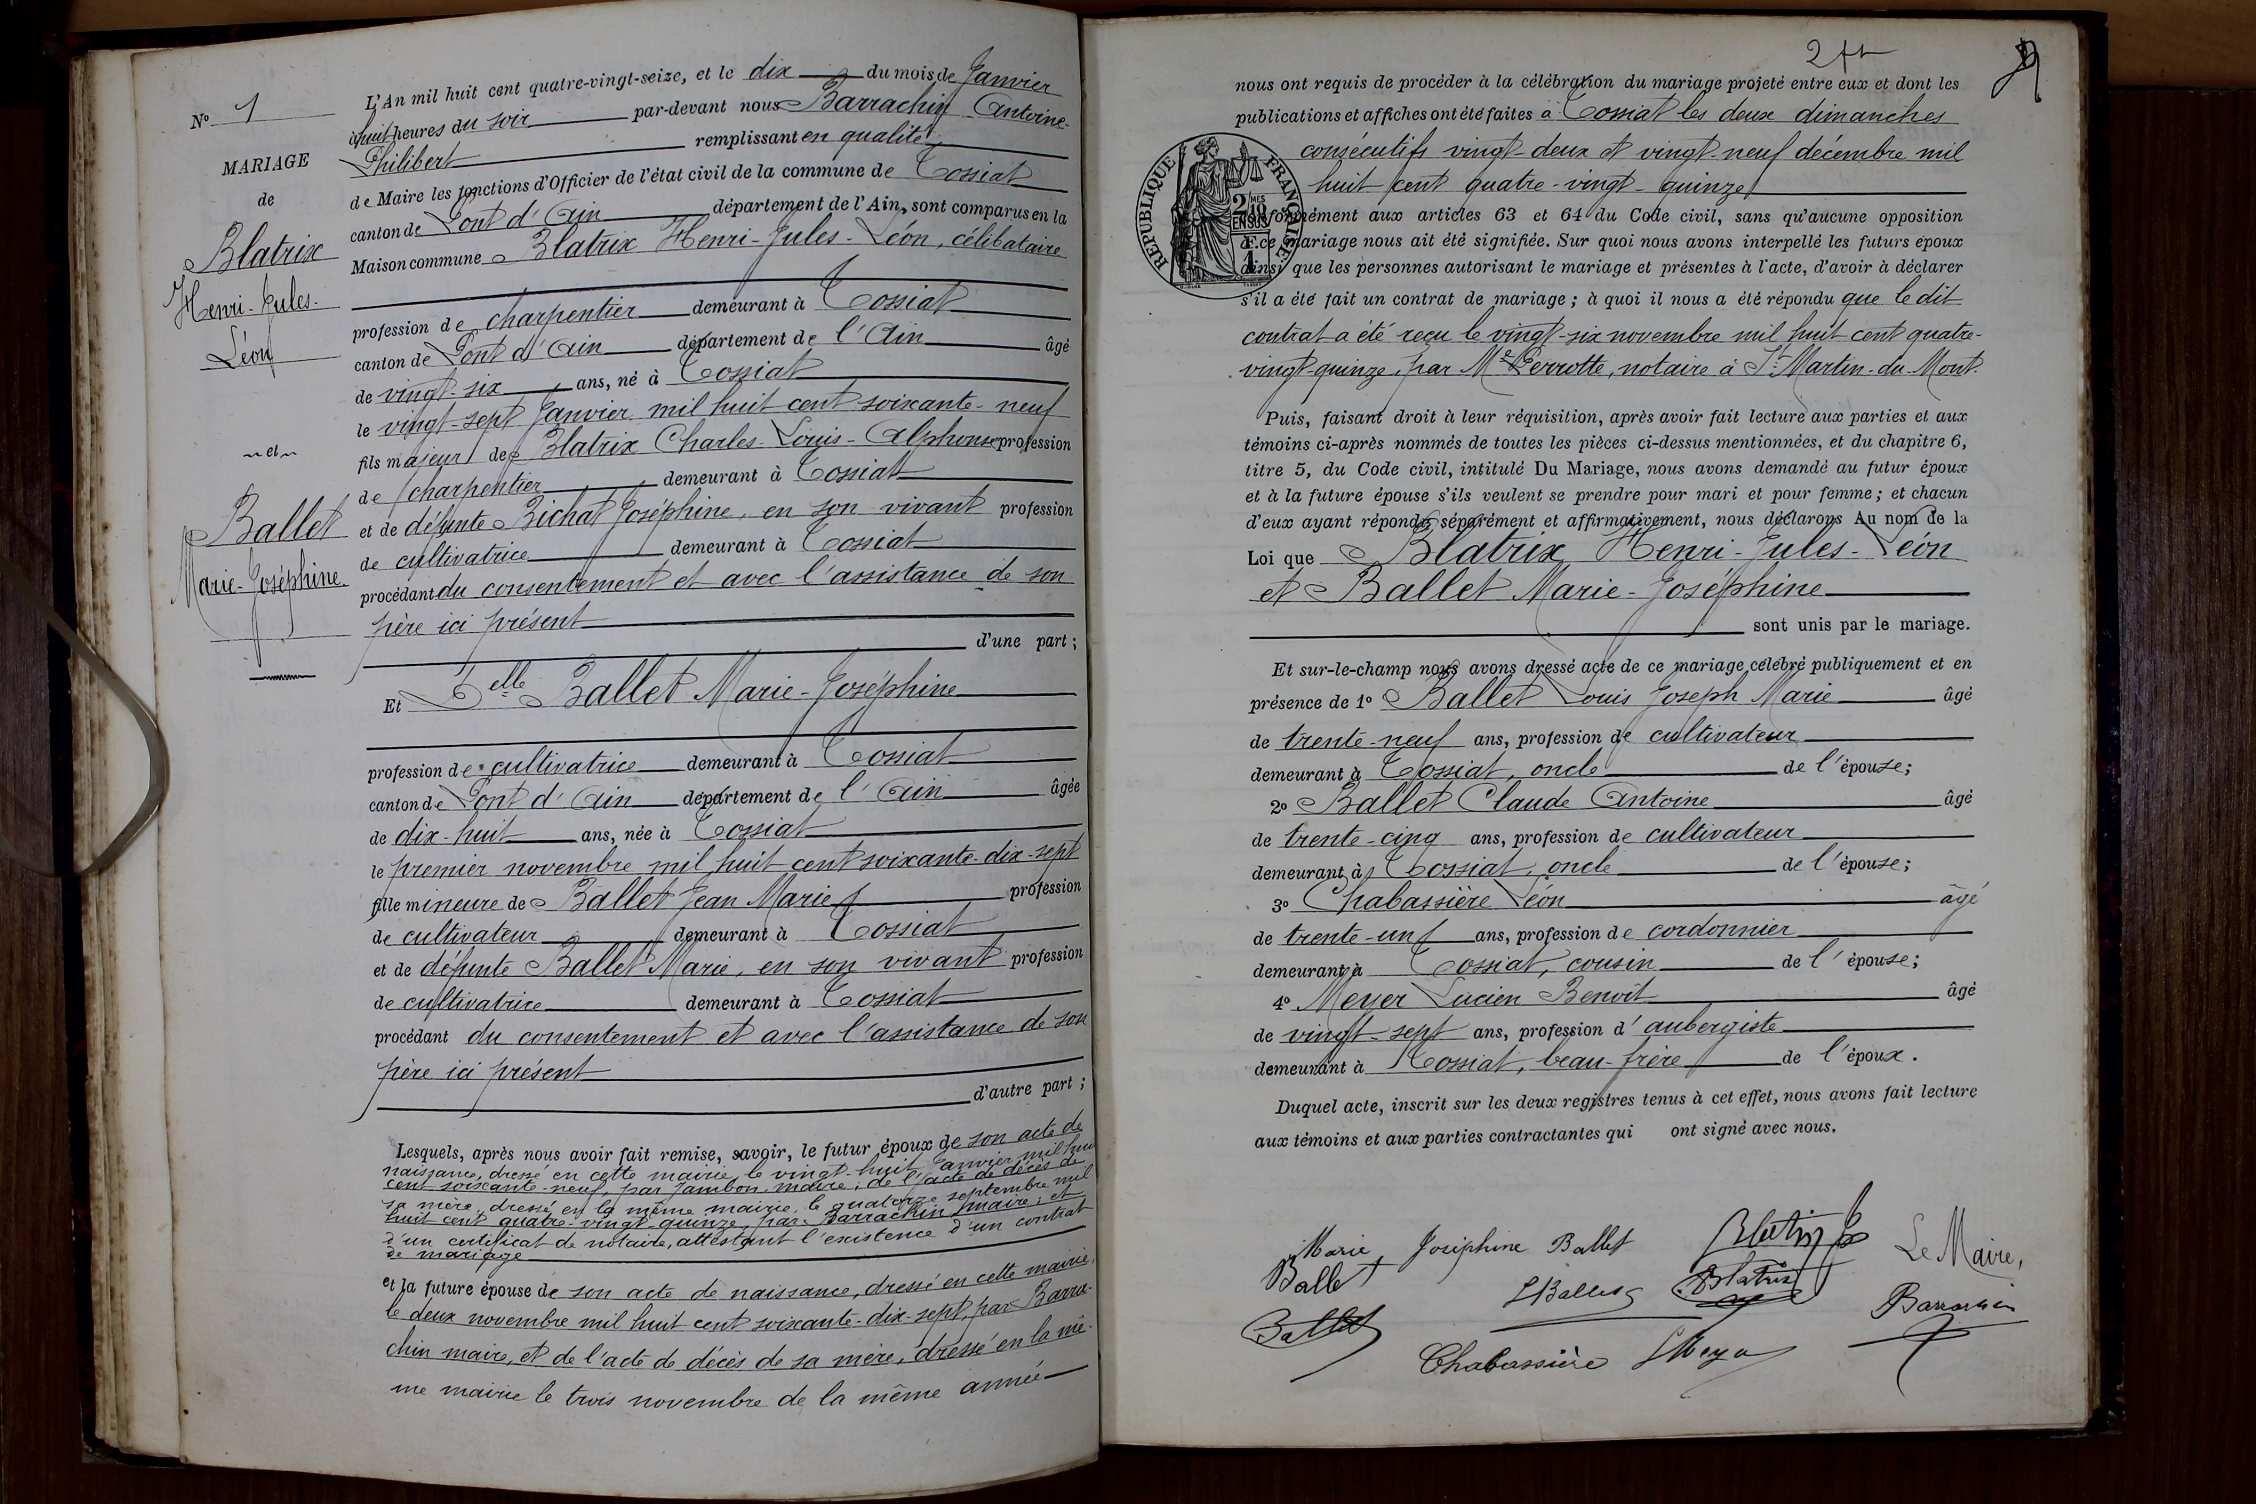 N° 1
MARIAGE
de
Blatrix
Henri-Jules-
Léon
et
Ballet
Marie-Joséphine
L'An mil huit cent quatre-vingt-seize, et le dix du mois de Janvier
à huit heures du soir par-devant nous Barrachin Antoine-
Philibert remplissant en qualité
de Maire les fonctions d'Officier de l'état civil de la commune de Tossiat
canton de Pont d'Ain département de l'Ain, sont comparus en la
Maison commune Blatrix Henri-Jules-Léon, célibataire
profession de charpentier demeurant à Tossiat
canton de Pont d'Ain département de l'Ain âgé
de vingt-six ans, né à Tossiat
le vingt-sept Janvier mil huit cent soixante-neuf
fils majeur de Blatrix Charles-Louis-Alphonse profession
de charpentier demeurant à Tossiat
et de défunte Bichat Joséphine, en son vivant profession
de cultivatrice demeurant à Tossiat
procédant du consentement et avec l'assistance de son
père ici présent
d'une part;
Et Delle Ballet Marie-Joséphine
profession de cultivatrice demeurant à Tossiat
canton de Pont d'Ain département de l'Ain âgée
de dix-huit ans, née à Tossiat
le premier novembre mil huit cent soixante-dix-sept
fille mineure de Ballet Jean Marie profession
de cultivateur demeurant à Tossiat
et de défunte Ballet Marie, en son vivant profession
de cultivatrice demeurant à Tossiat
procédant du consentement et avec l'assistance de son
père ici présent
d'autre part;
Lesquels, après nous avoir fait remise, savoir, le futur époux de son acte de
naissance, dressé en cette mairie le vingt-huit Janvier mil huit
cent soixante-neuf, par Jambon, maire; de l'acte de décès de
sa mère, dressé en la même mairie, le quatorze septembre mil
huit cent quatre-vingt-quinze, par Barrachin maire; et
d'un certificat de notaire, attestant l'existence d'un contrat
de mariage
et la future épouse de son acte de naissance, dressé en cette mairie,
le deux novembre mil huit cent soixante-dix-sept, par Barra-
chin maire, et de l'acte de décès de sa mère, dressé en la mê-
me mairie le trois novembre de la même année
nous ont requis de procéder à la célébration du mariage projeté entre eux et dont les
publications et affiches ont été faites à Tossiat les deux dimanches
consécutifs vingt-deux et vingt-neuf décembre mil
huit cent quatre-vingt-quinze
RÉPUBLIQUE FRANÇAISE
2/10MES
EN SUS
1F.
conformément aux articles 63 et 64 du Code civil, sans qu'aucune opposition
à ce mariage nous ait été signifiée. Sur quoi nous avons interpellé les futurs époux
ainsi que les personnes autorisant le mariage et présentes à l'acte, d'avoir à déclarer
s'il a été fait un contrat de mariage; à quoi il nous a été répondu que le dit
contrat a été reçu le vingt-six novembre mil huit cent quatre-
vingt-quinze, par Me Perrotte, notaire à St Martin-du-Mont.
Puis, faisant droit à leur réquisition, après avoir fait lecture aux parties et aux
témoins ci-après nommés de toutes les pièces ci-dessus mentionnées, et du chapitre 6,
titre 5, du Code civil, intitulé Du Mariage, nous avons demandé au futur époux
et à la future épouse s'ils veulent se prendre pour mari et pour femme; et chacun
d'eux ayant répondu séparément et affirmativement, nous déclarons Au nom de la
Loi que Blatrix Henri-Jules-Léon
et Ballet Marie-Joséphine
sont unis par le mariage.
Et sur-le-champ nous avons dressé acte de ce mariage célébré publiquement et en
présence de 1° Ballet Louis Joseph Marie âgé
de trente-neuf ans, profession de cultivateur
demeurant à Tossiat, oncle de l'épouse;
2° Ballet Claude Antoine âgé
de trente-cinq ans, profession de cultivateur
demeurant à Tossiat, oncle de l'épouse;
3° Chabassière Léon âgé
de trente-un ans, profession de cordonnier
demeurant à Tossiat, cousin de l'épouse;
4° Meyer Lucien Benoît âgé
de vingt-sept ans, profession d'aubergiste
demeurant à Tossiat, beau-frère de l'époux.
Duquel acte, inscrit sur les deux registres tenus à cet effet, nous avons fait lecture
aux témoins et aux parties contractantes qui ont signé avec nous.
Marie Joséphine Ballet
Blatrix
Le Maire,
Ballet
Blatrix
Barrachin
Ballet
Chabassière